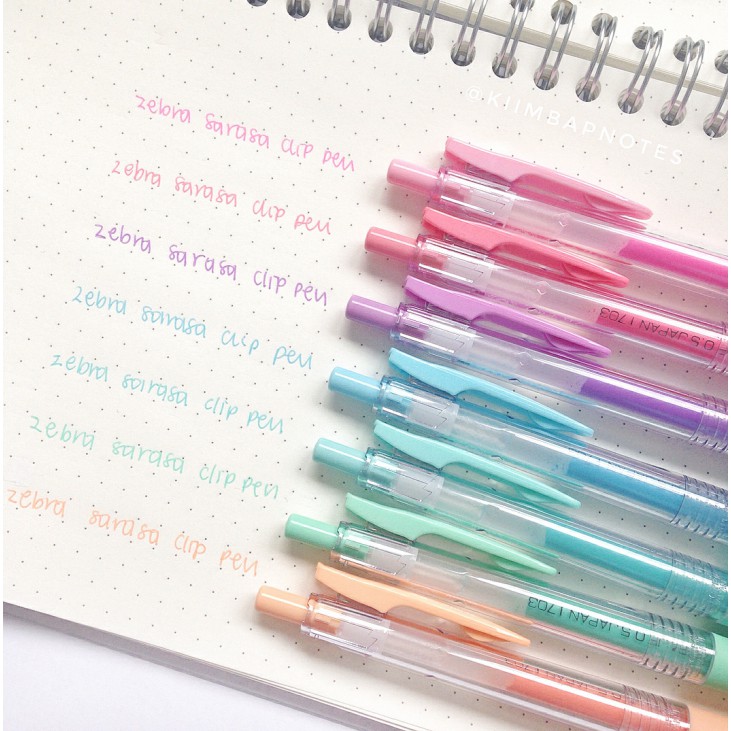 @KIIMBAPNOTES
zebra sarasa clip pen
zebra sarasa clip pen
zebra sarasa clip pen
zebra sarasa clip pen
zebra sarasa clip pen
zebra sarasa clip pen
zebra sarasa clip pen
0.5 JAPAN 1703
0.5 JAPAN 1703